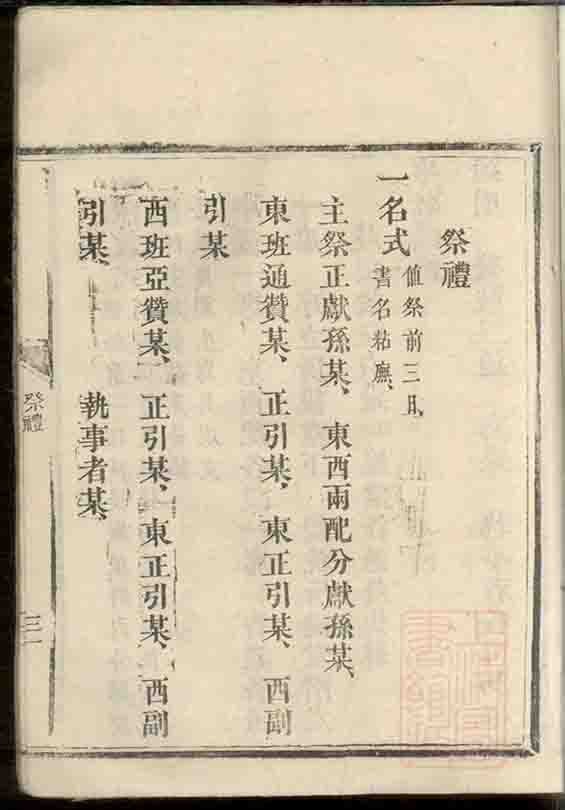 祭禮
一名式 值祭前三日、
書名粘廡、
主祭正獻孫某、東西兩配分獻孫某、
東班通贊某、正引某、東正引某、西副
引某
西班亞贊某、正引某、東正引某、西副
引某、執事者某、
祭禮